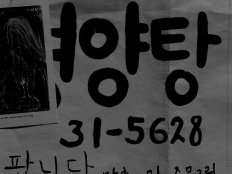 영양탕
31-5628
팝니다